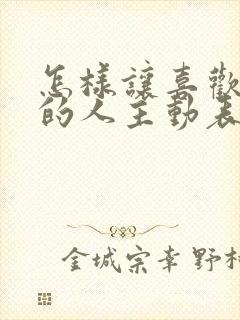 怎樣讓喜歡
的人主動表
金城宗幸野村